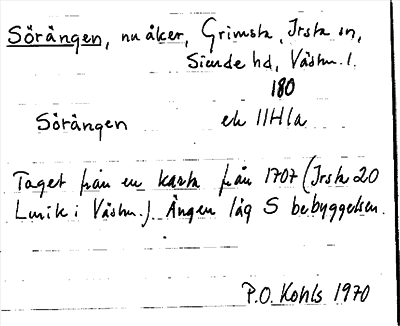 Sörängen, nu åker, Grimsta, Irsta sn,
Siende hd, Västm. l.
180
Sörängen ek 11H1a
Taget från en karta från 1707 (Irsta 20
Lmik i Västm.). Ängen låg S bebyggelsen.
P.O. Kohls 1970